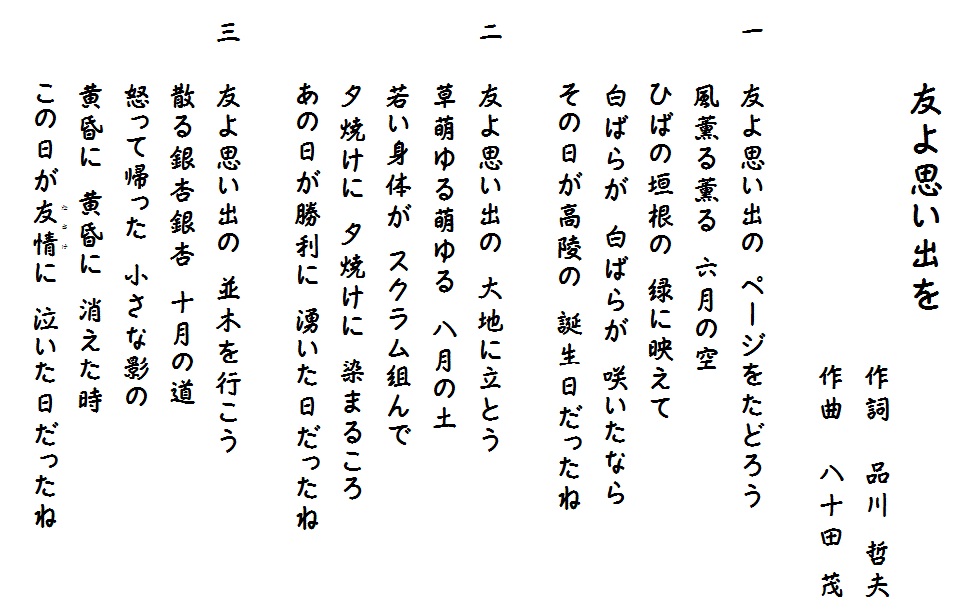 友よ思い出を
作詞 品川 哲夫
作曲 八十田 茂
一 友よ思い出の ページをたどろう
風薫る薫る 六月の空
ひばの垣根の 緑に映えて
白ばらが 白ばらが 咲いたなら
その日が高陵の 誕生日だったね
二 友よ思い出の 大地に立とう
草萌ゆる萌ゆる 八月の土
若い身体が スクラム組んで
夕焼けに 夕焼けに 染まるころ
あの日が勝利に 湧いた日だったね
三 友よ思い出の 並木を行こう
散る銀杏銀杏 十月の道
怒って帰った 小さな影の
黄昏に 黄昏に 消えた時
この日が友情に 泣いた日だったね